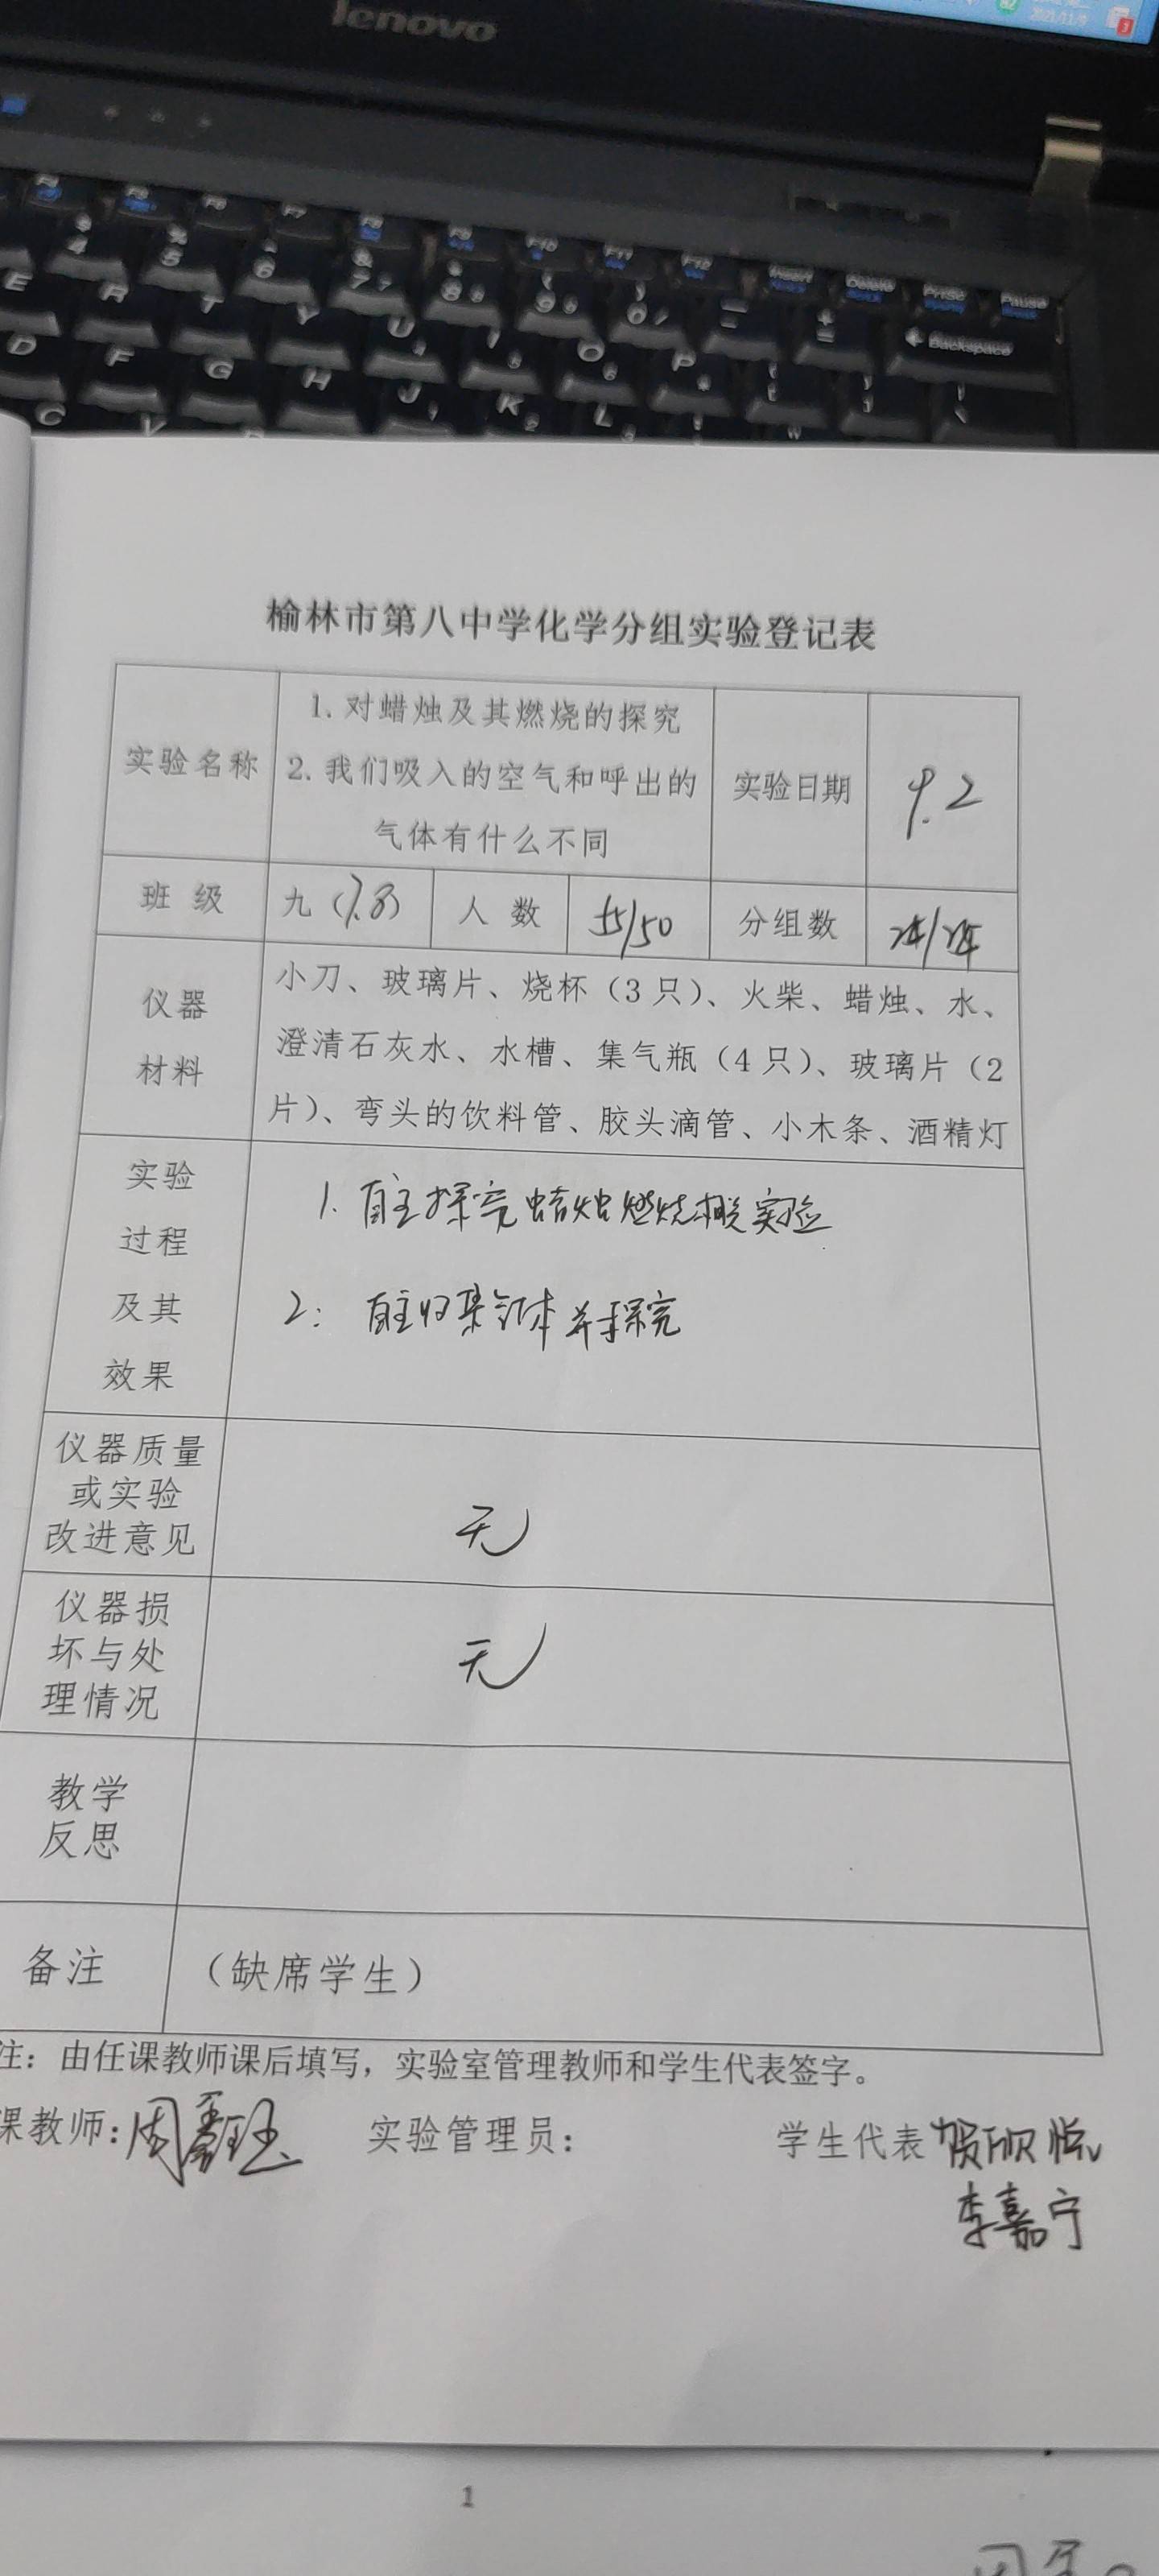 lenovo
2021/11/9
3
F5 F6 F7 F8 F9 F10 F11 F12 Insert Delete PrtSc Pause
4 5 6 7 8 9 0 Backspace
E R T Y U I O P
D F G H J K L
C V
榆林市第八中学化学分组实验登记表
实验名称
1. 对蜡烛及其燃烧的探究
2. 我们吸入的空气和呼出的
气体有什么不同
实验日期
9.2
班 级 九(7.8) 人 数 55/50 分组数
仪器
材料
小刀、玻璃片、烧杯（3 只）、火柴、蜡烛、水、
澄清石灰水、水槽、集气瓶（4 只）、玻璃片（2
片）、弯头的饮料管、胶头滴管、小木条、酒精灯
实验
过程
及其
效果
1. 自主探究蜡烛燃烧 实验
2: 自主收集气体并探究
仪器质量
或实验
改进意见
无
仪器损
坏与处
理情况
无
教学
反思
备注 （缺席学生）
注：由任课教师课后填写，实验室管理教师和学生代表签字。
课教师: 周 实验管理员： 学生代表 贺欣
李嘉宁
1